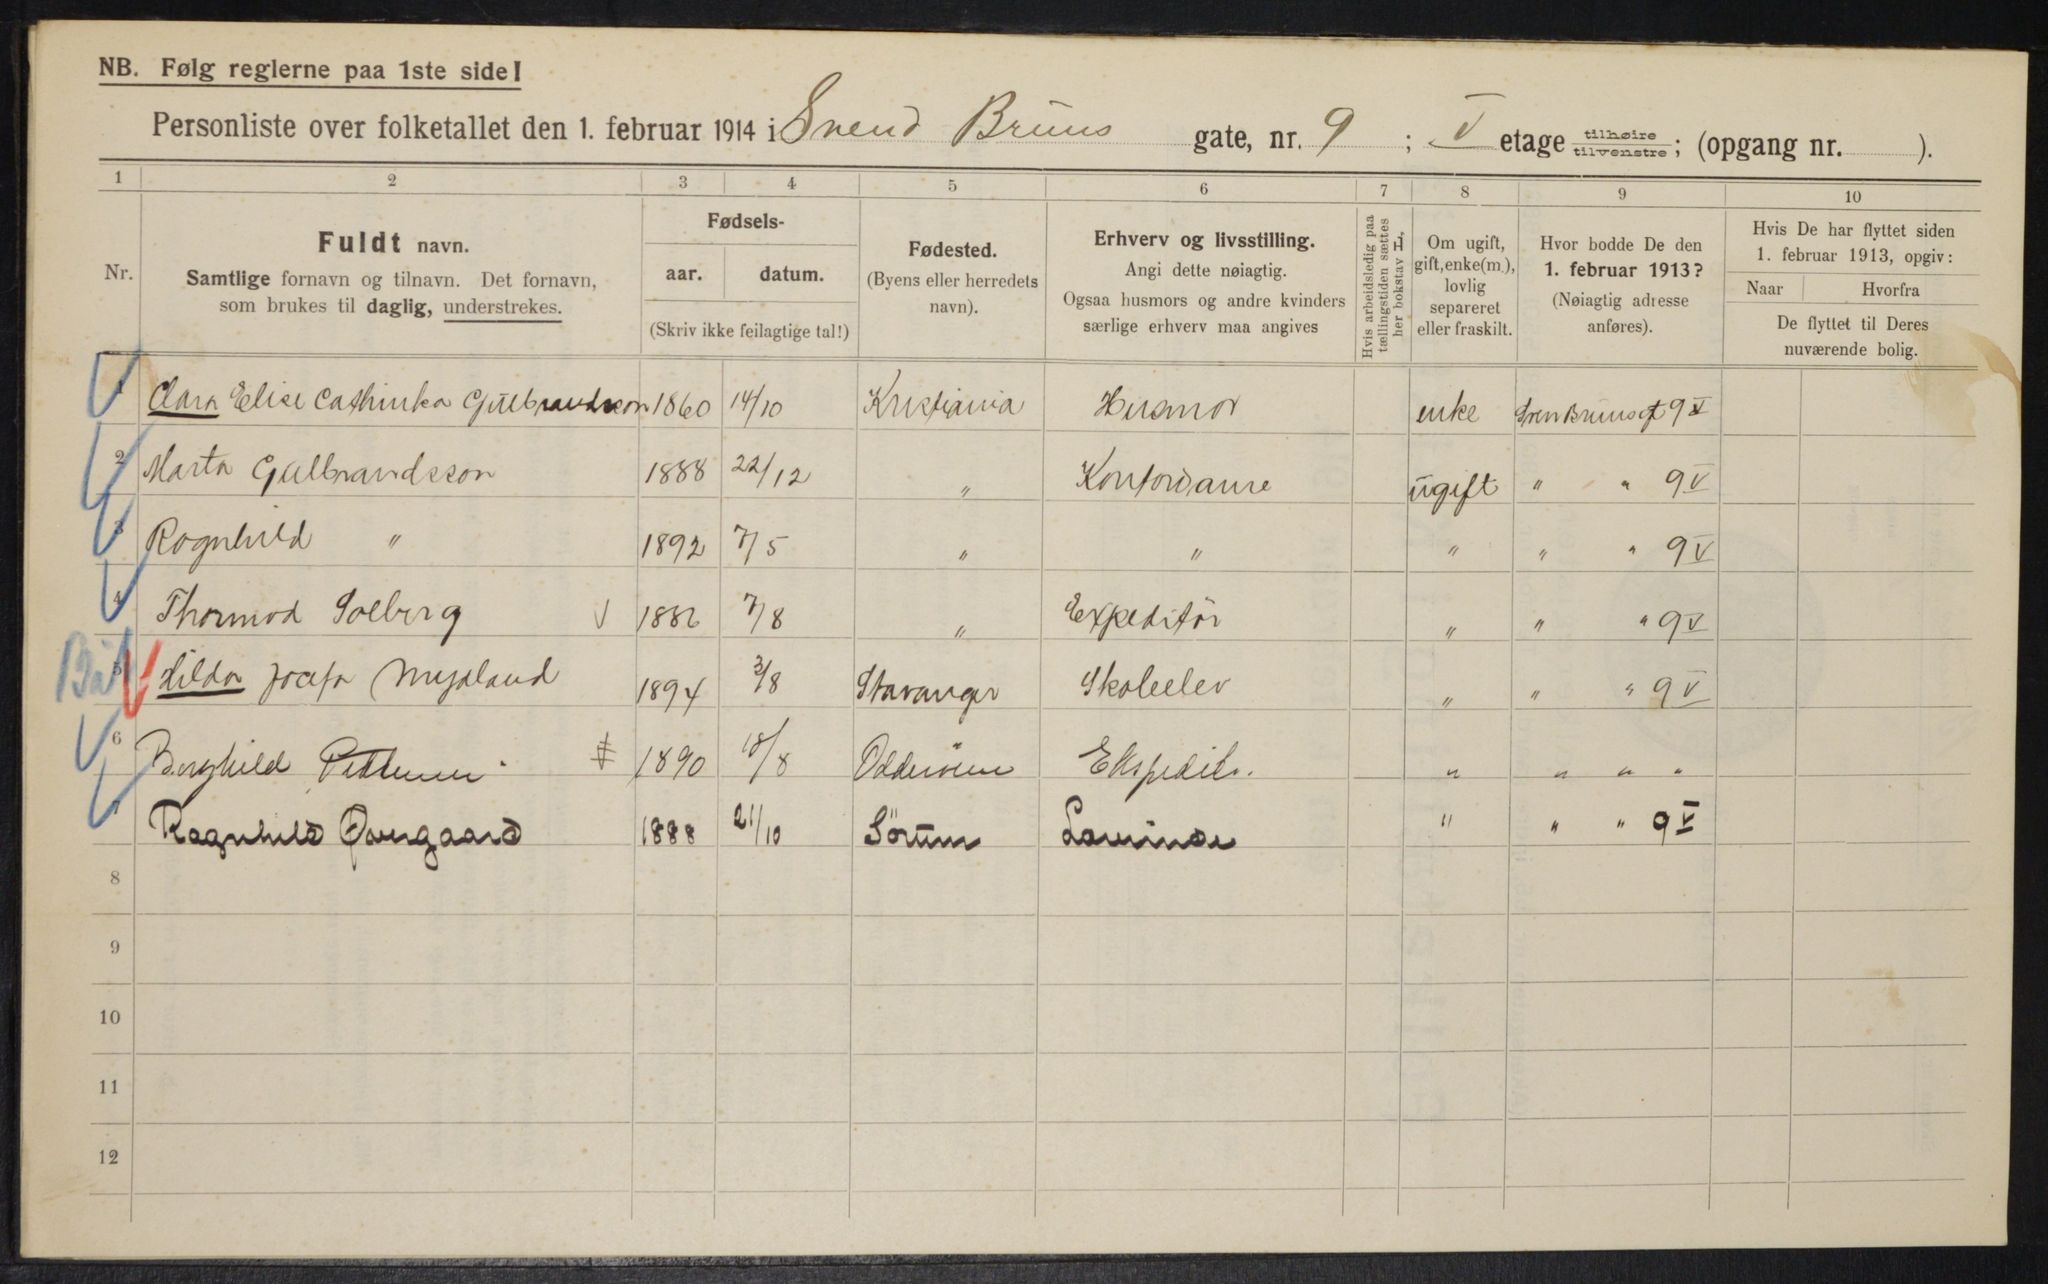 NB. Følg reglerne paa 1ste side!
Personliste over folketallet den 1. februar 1914 i Svend Bruns gate, nr. 9 ; V etage tilhøire tilvenstre; (opgang nr. ).
1 2 3 4 5 6 7 8 9 10
Nr.
Fuldt navn.
Samtlige fornavn og tilnavn. Det fornavn,
som brukes til daglig, understrekes.
Fødsels-
aar. datum.
(Skriv ikke feilagtige tal!)
Fødested.
(Byens eller herredets
navn).
Erhverv og livsstilling.
Angi dette nøiagtig.
Ogsaa husmors og andre kvinders
særlige erhverv maa angives
Hvis arbeidsledig paa
tællingstiden sættes
her bokstav L.
Om ugift,
gift, enke(m.),
lovlig
separeret
eller fraskilt.
Hvor bodde De den
1. februar 1913?
(Nøiagtig adresse
anføres).
Hvis De har flyttet siden
1. februar 1913, opgiv:
Naar Hvorfra
De flyttet til Deres
nuværende bolig.
1 Clara Elise Cathinka Gulbrandsson 1860 14/10 Kristiania Husmor enke Sven Bruns gt 9 V
2 Marta Gulbrandsson 1888 22/12 " Kontordame ugift " " 9 V
3 Ragnhild " 1892 7/5 " " " " " 9 V
4 Thormod Solberg 1886 7/8 " Expeditör " " " 9 V
5 Hilda Josefa Mydland 1894 3/8 Stavanger Skoleelev " " " 9 V
6 Borghild 1890 18/8 Oddernes Ekspeditr. " " " "
7 Ragnhild Øvergaard 1888 21/10 Sörum " " " 9 V
8
9
10
11
12